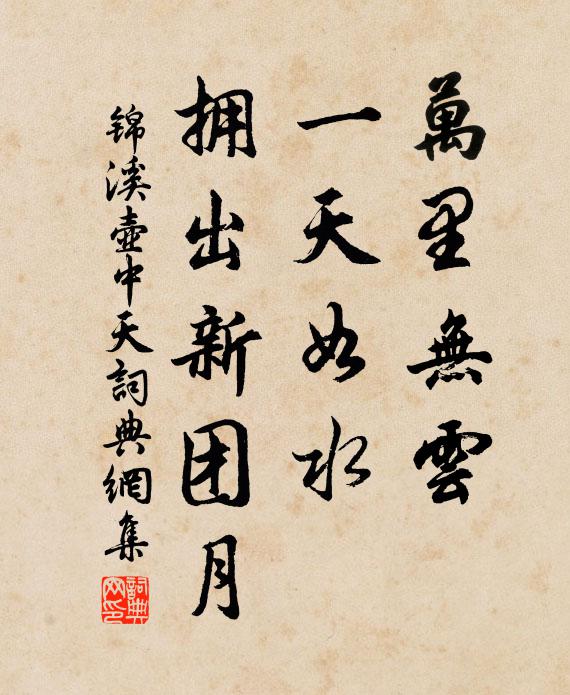 萬里無雲
一天如水
拥出新团月
锦溪壺中天詞典網集
詞典網印